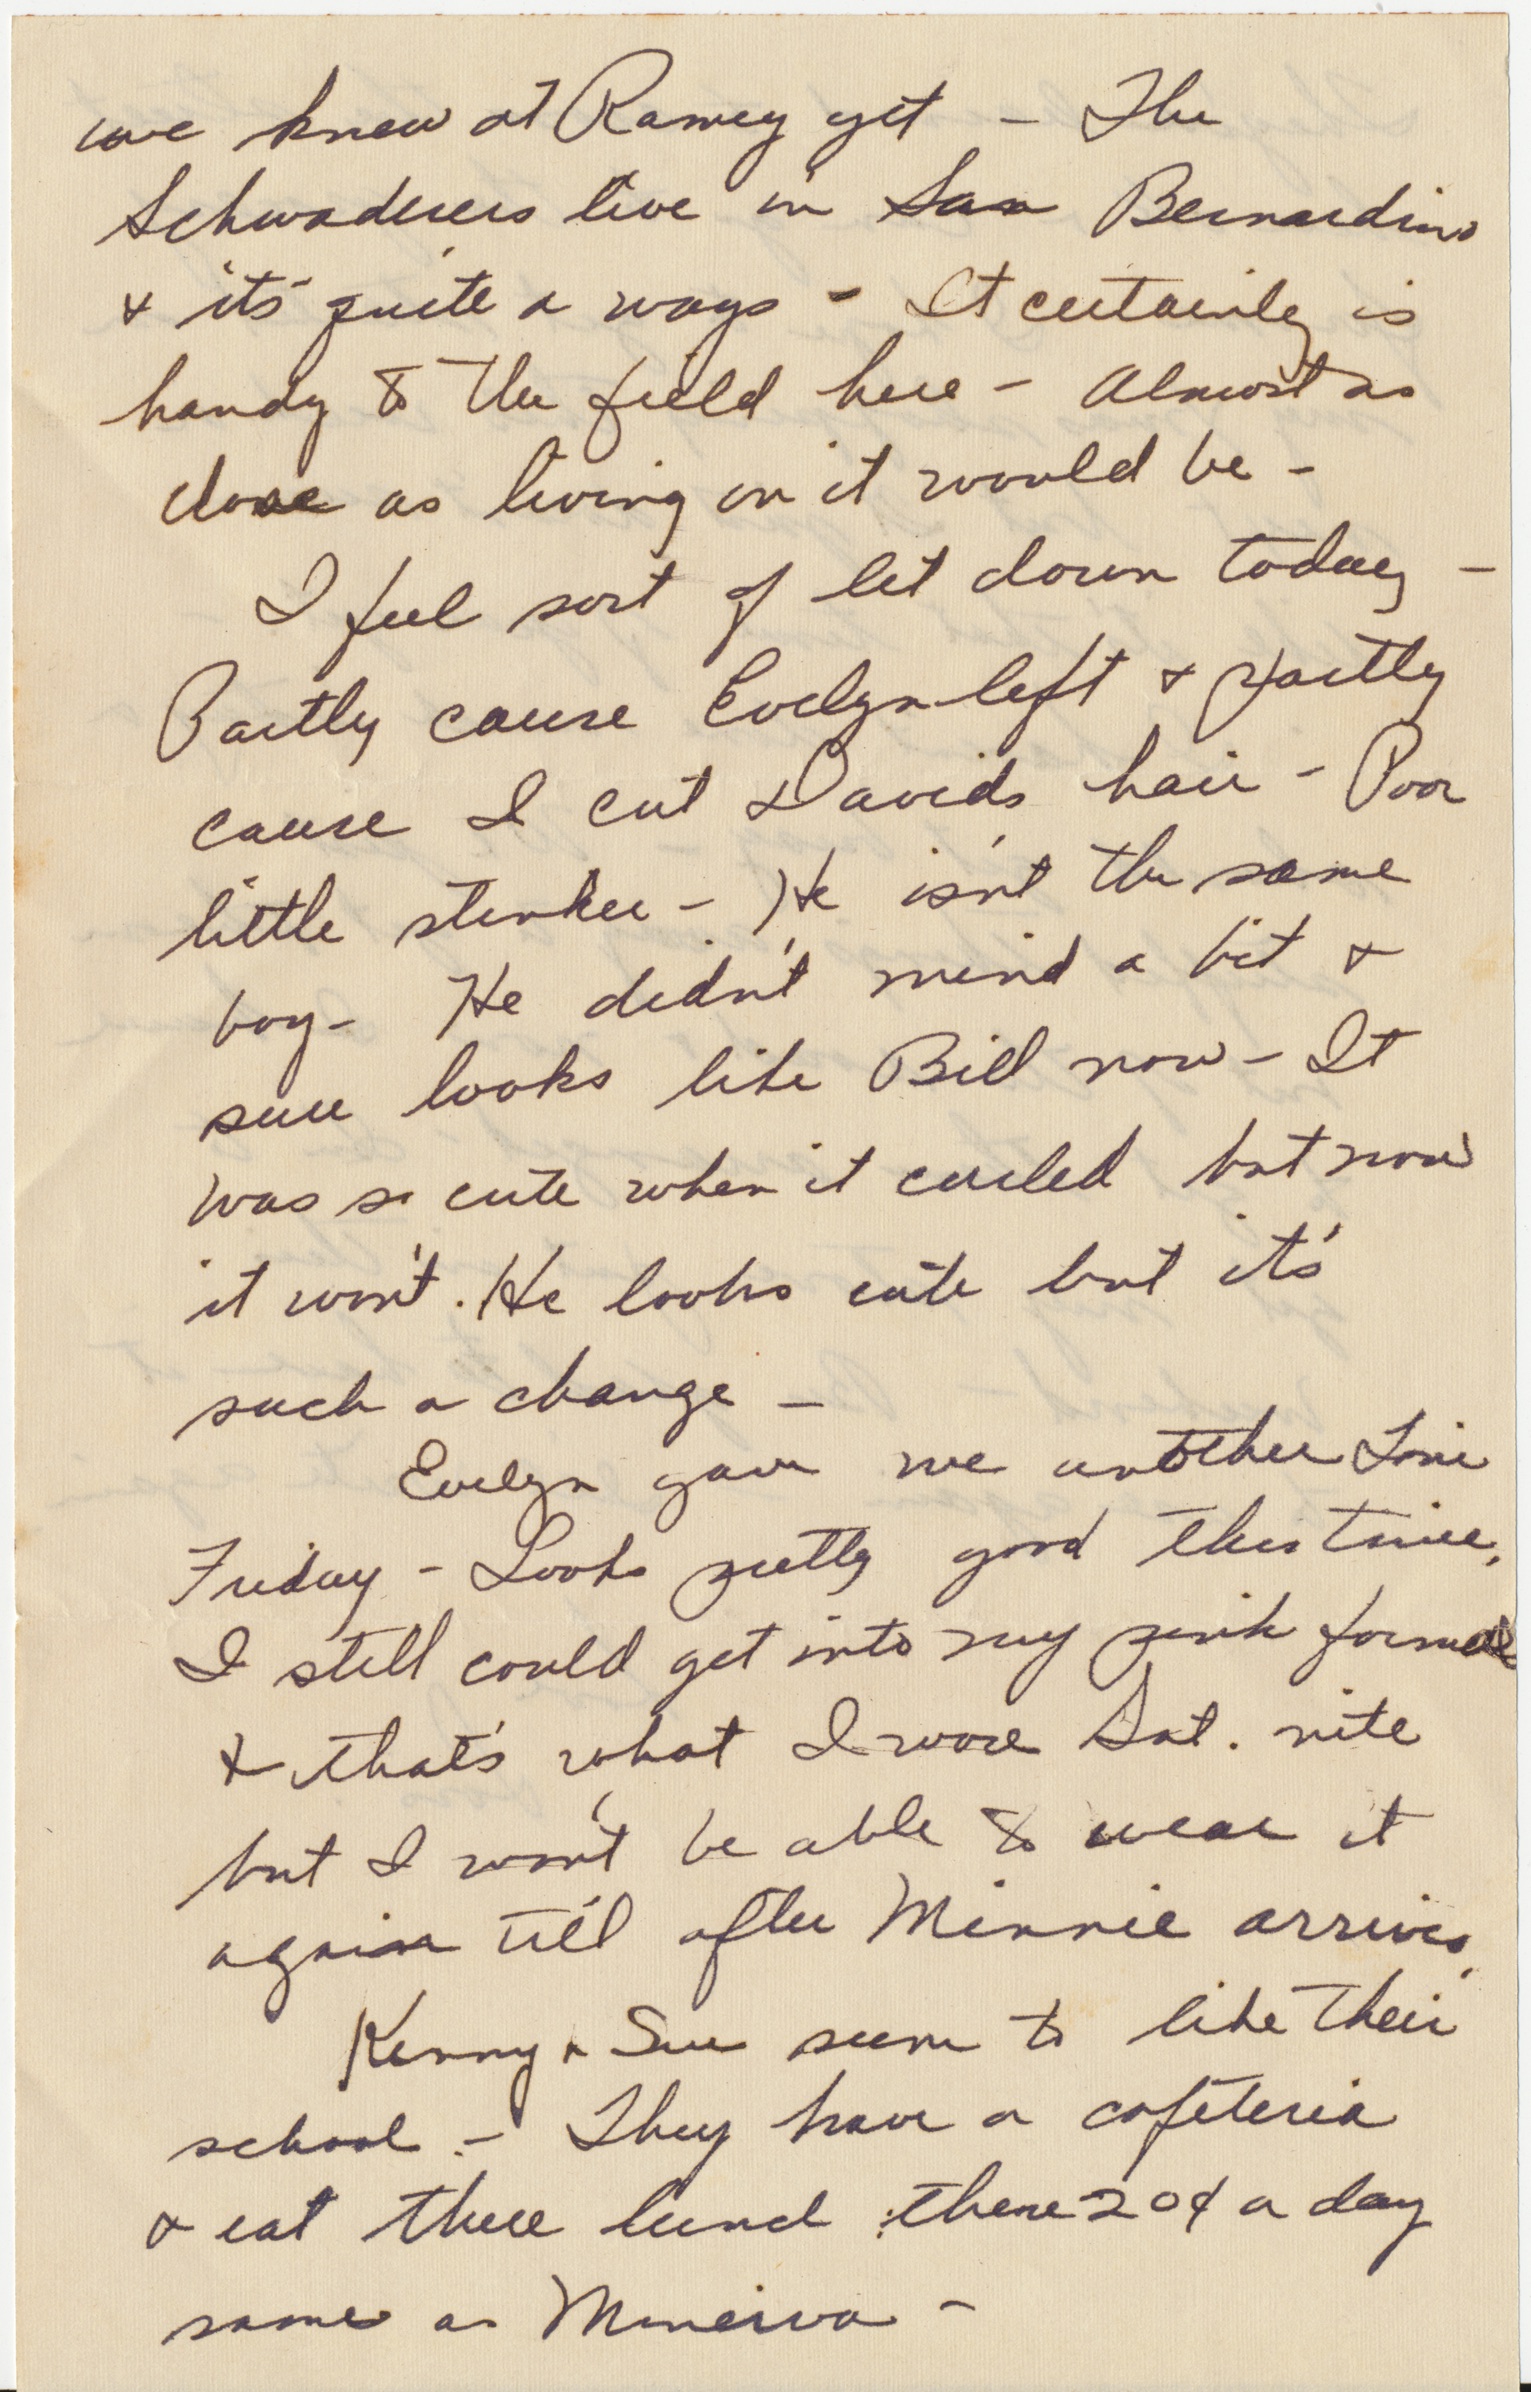 we knew at Ramey yet - The
Schwaderers live in San Bernardino
& it's quite a ways - It certainly is
handy to the field here - Almost as
close as living on it would be -
I feel sort of let down today -
Partly cause Evelyn left & partly
cause I cut Davids hair - Poor
little stinker - He isn't the same
boy - He didn't mind a bit &
sure looks like Bill now - It
was so cute when it curled but now
it won't. He looks cute but it's
such a change -
Evelyn gave me another Toni
Friday - Looks pretty good this time.
I still could get into my pink formal
& that's what I wore Sat. nite
but I won't be able to wear it
again till after Minnie arrives.
Kenny & Sue seem to like their
school - They have a cafeteria
& eat there lunch there 20¢ a day
same as Minerva -